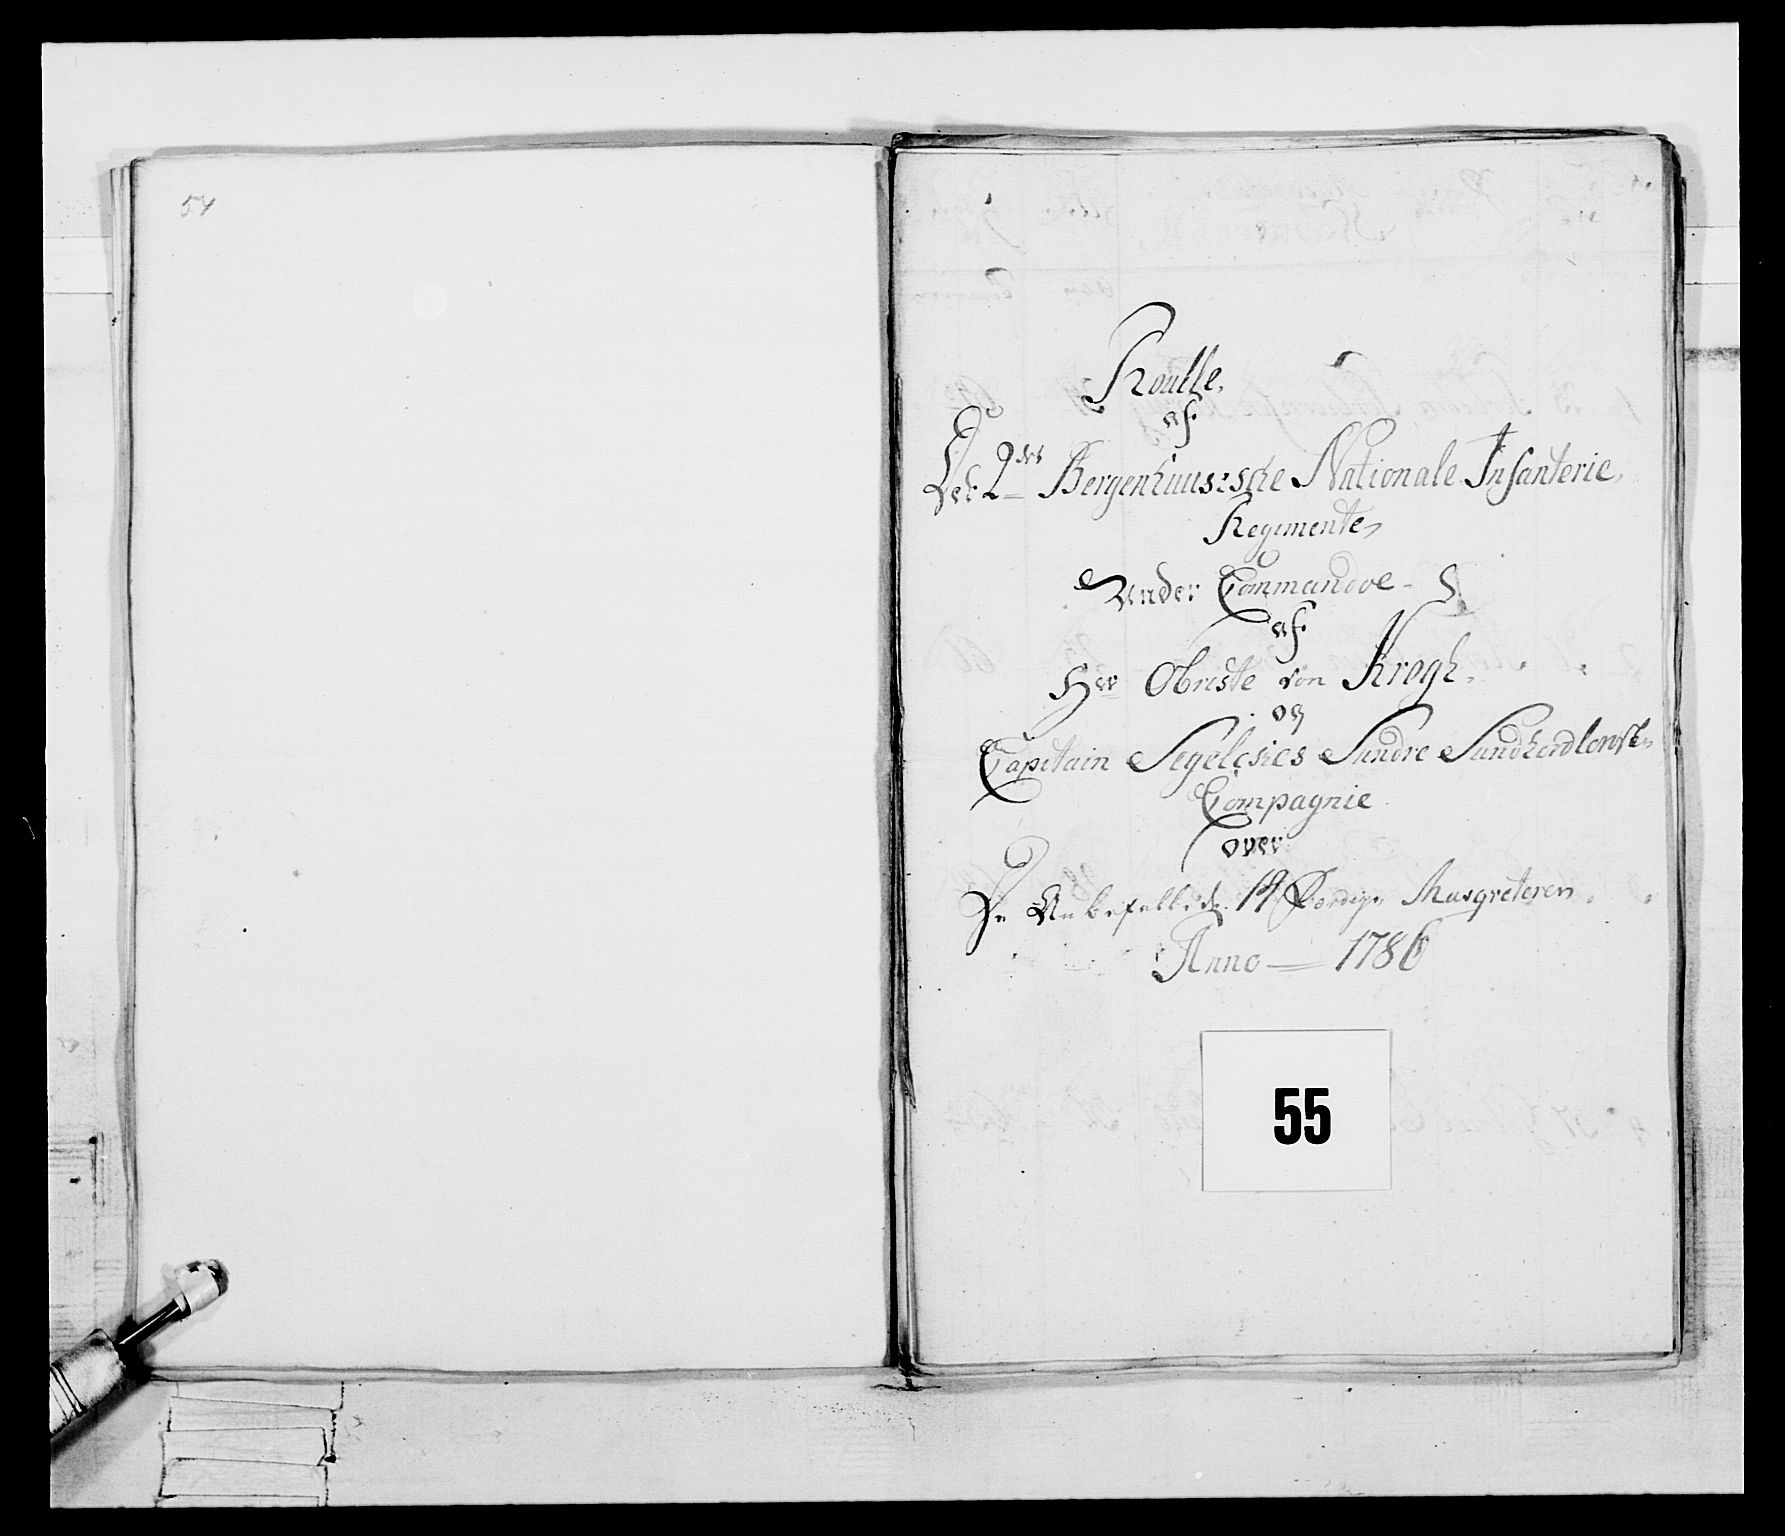 54
Roulle,
af
Det 2det Bergenhuusische Nationale Infanterie,
Regimente,
Under Commandoe
af
Hr Obriste von Krogh.
og
Capitain Segelckes Sundre Sundhordlenske
Compagnie
over
De Anbefallede 14 Færdige Musqveterer
Anno 1786
55